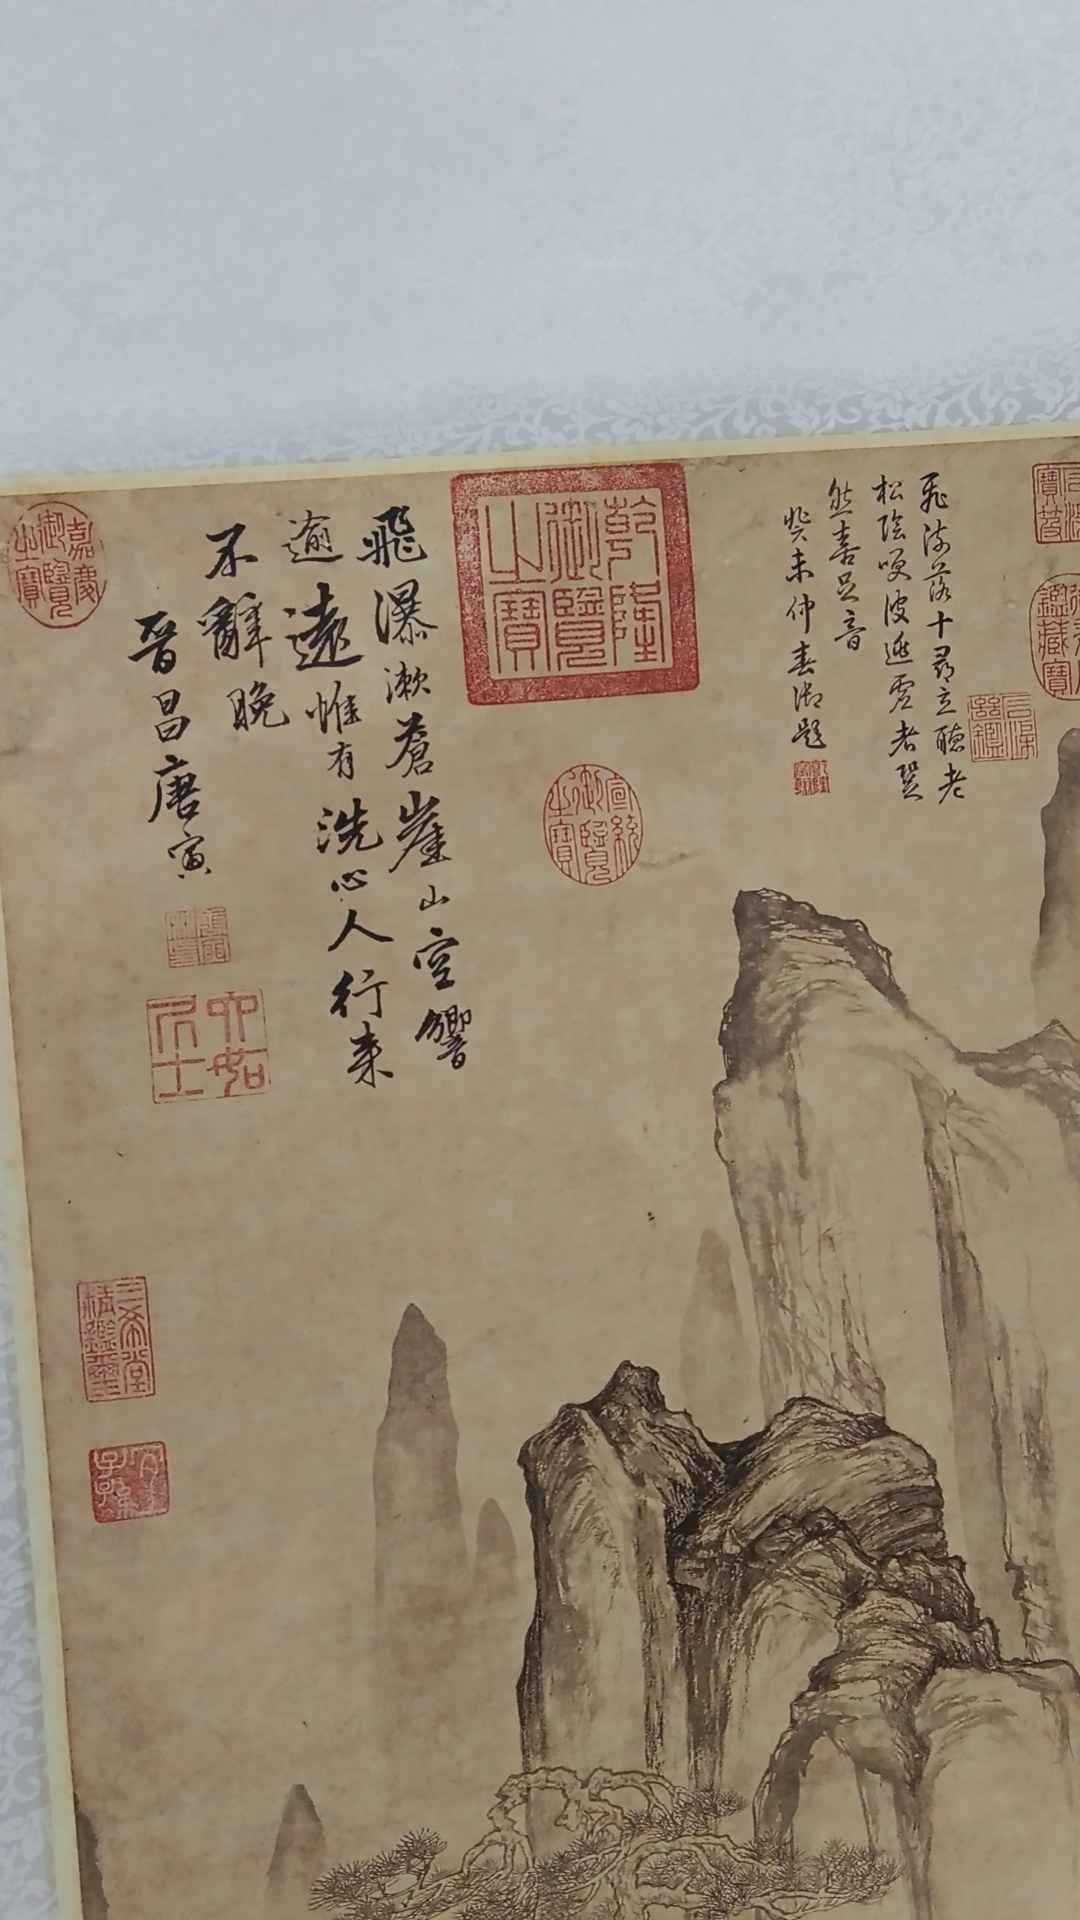 寶笈
鑑藏寶
三希
飛流落十尋立聽老
松陰哽波遊雲者
然喜足音
癸未仲春御題
乾隆御覽之寶
宣統御覽之寶
飛瀑漱蒼崖山空響
逾遠惟有洗心人行來
不辭晚
晉昌唐寅
六如居士
嘉慶御覽之寶
三希堂精鑑璽
宜子孫